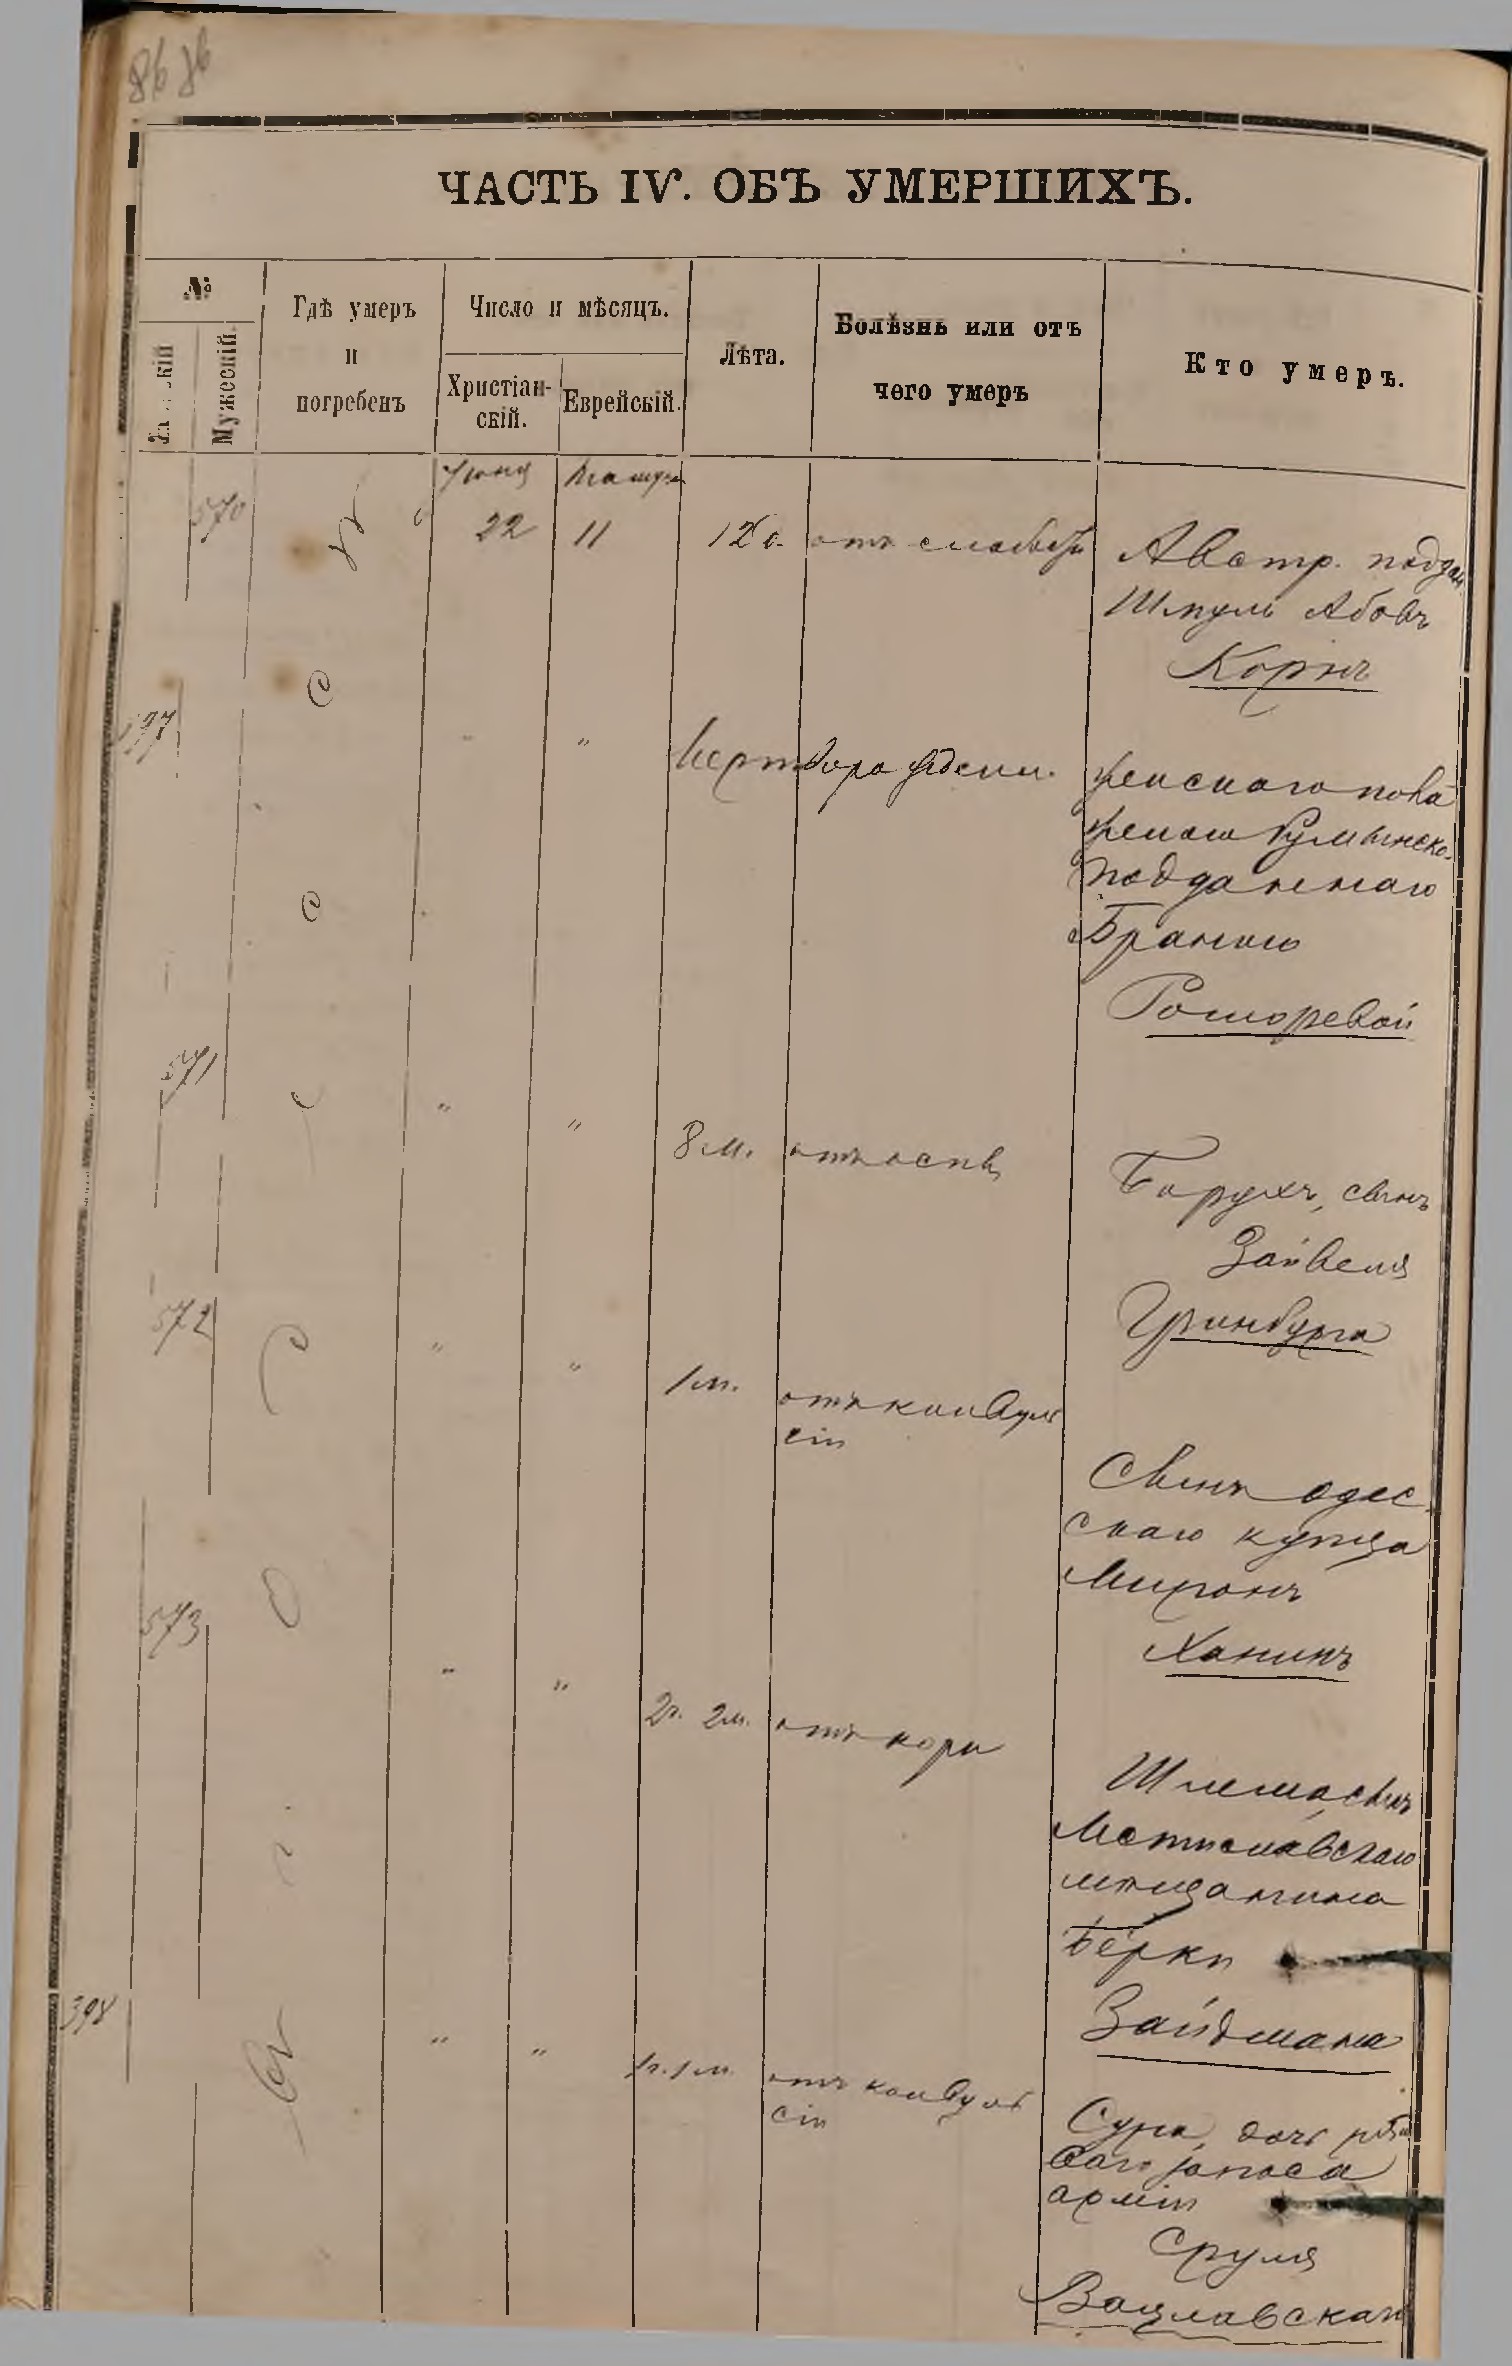 86 86
ЧАСТЬ IV. ОБЪ УМЕРШИХЪ.
№
Мужескій.
Гдѣ умеръ
и
погребенъ
Число и мѣсяцъ.
Христіан-
скій.
Еврейскій.
Лѣта.
Болѣзнь или отъ
чего умеръ
Кто умеръ.
Іюня
570
22
11
отъ слабости
Австр. поддан.
Шмуль Абовъ
Корнъ
"
"
Мертворожден.
женскаго пола
Румынско-
подданнаго
571
"
"
8 м.
отъ оспы
Борухъ, сынъ
Зайвеля
Гринбурга
572
"
"
1 м.
отъ конвуль
сіи
Сынъ одес
скаго купца
Миронъ
Ханинъ
573
"
"
2 г. 2 м.
отъ кори
Шлема, сынъ
Мстиславскаго
мѣщанина
Берки
Зайдмана
398
"
"
1 г. 1 м.
отъ конвуль
сіи
Сура, дочь
запаса
арміи
Сруля
Вацлавскаго